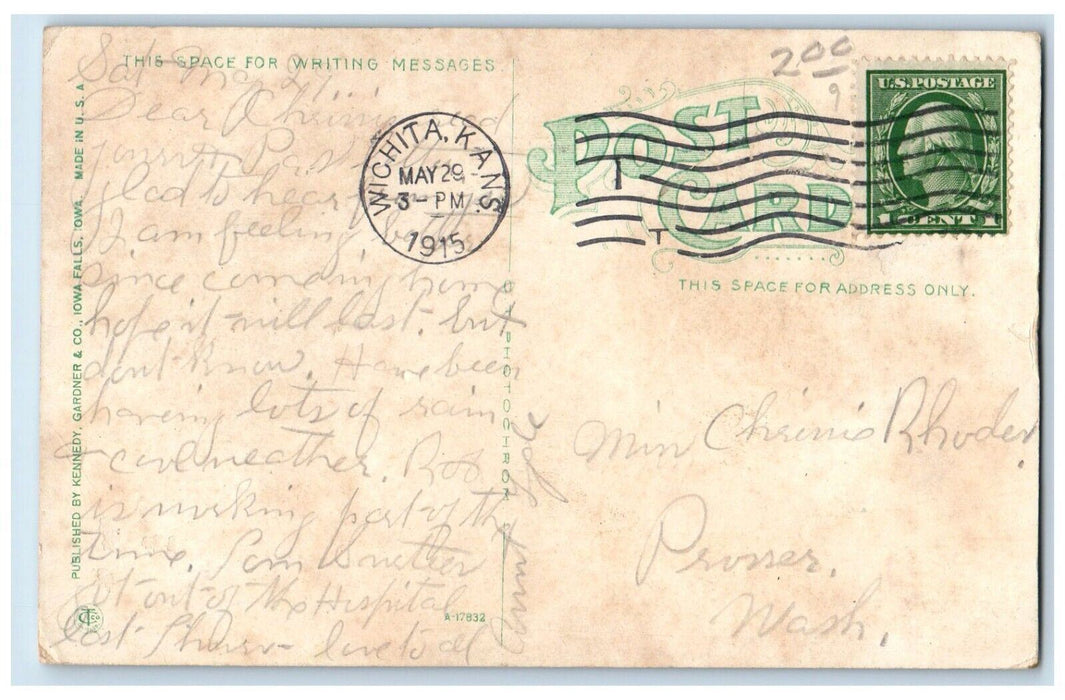 THIS SPACE FOR WRITING MESSAGES
Sat May 29
Dear Chrinis and
Glad to hear
I am feeling
since comeing home
hope it will last. but
dont know. Have been
having lots of rain
& cool weather. Rob
is working part of the
time. Sam
got out of the Hospital
last Thurs - love to all
PUBLISHED BY KENNEDY, GARDNER & CO., IOWA FALLS, IOWA. MADE IN U. S. A.
PHOTOCHROM
A-17832
WICHITA, KANS.
MAY 29
3 - PM
1915
2 00
9
POST CARD
U.S. POSTAGE
1 CENT 1
THIS SPACE FOR ADDRESS ONLY.
Miss Chrinis Rhodes,
Prosser,
Wash,